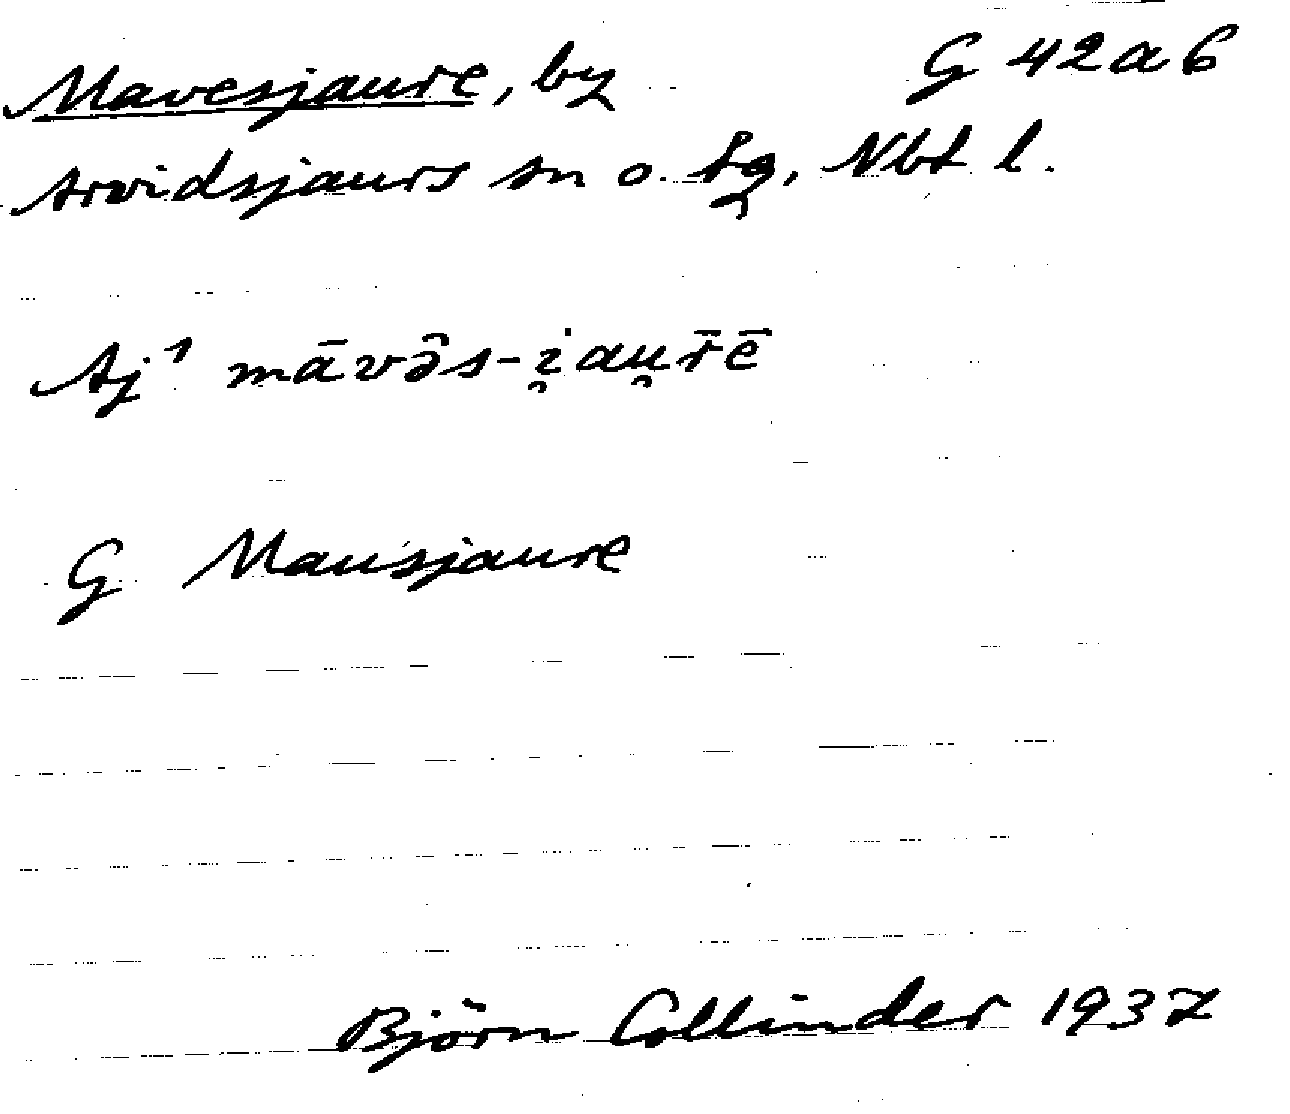 Mavesjaure, by G 42 a 6
Arvidsjaurs sn o. tg, Nbt l.
Aj¹ māvə̑s-i̯au̯r̄ē
G Mausjaure
Björn Collinder 1937